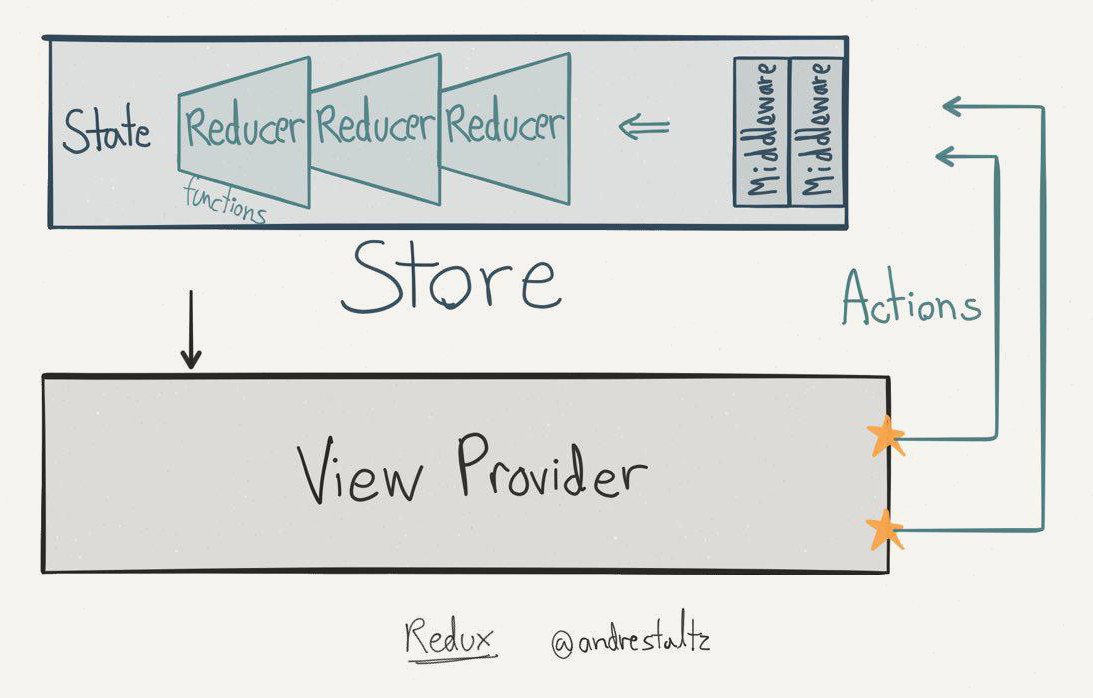 State
Reducer Reducer Reducer
functions
Middleware
Middleware
Store
Actions
View Provider
Redux @andrestaltz